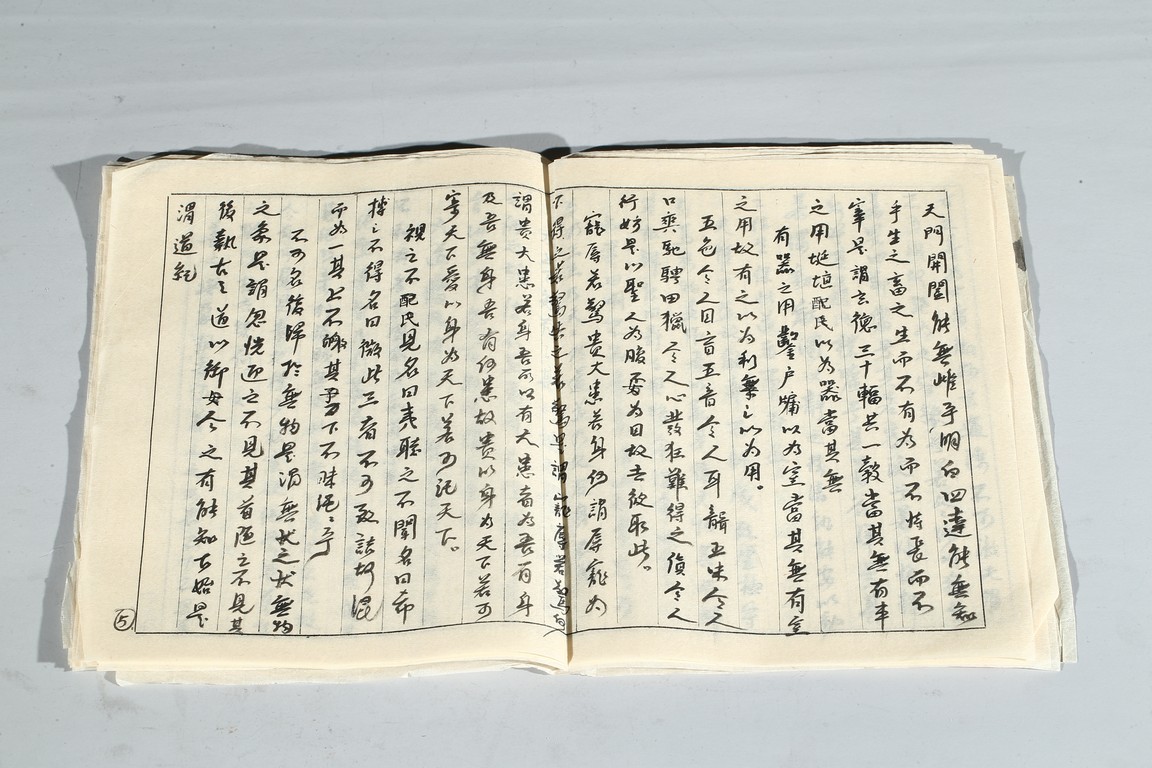 天門開闔能無雌乎明白四達能無知
乎生之畜之生而不有為而不恃長而不
宰是謂玄德三十輻共一轂當其無有車
之用埏埴配民以為器當其無
有器之用鑿戶牖以為室當其無有室
之用故有之以為利無之以為用。
五色令人目盲五音令人耳聾五味令人
口爽馳騁田獵令人心發狂難得之貨令人
行妨是以聖人為腹不為目故去彼取此。
寵辱若驚貴大患若身何謂辱寵為
下得之若驚失之若驚是謂寵辱若驚何
謂貴大患若身吾所以有大患者為吾有身
及吾無身吾有何患故貴以身為天下若可
寄天下愛以身為天下若可託天下。
視之不配民見名曰夷聽之不聞名曰希
搏之不得名曰微此三者不可致詰故混
而為一其上不皦其下不昧繩繩兮
不可名復歸於無物是謂無狀之狀無物
之象是謂忽恍迎之不見其首隨之不見其
後執古之道以御今之有能知古始是
謂道紀
⑤